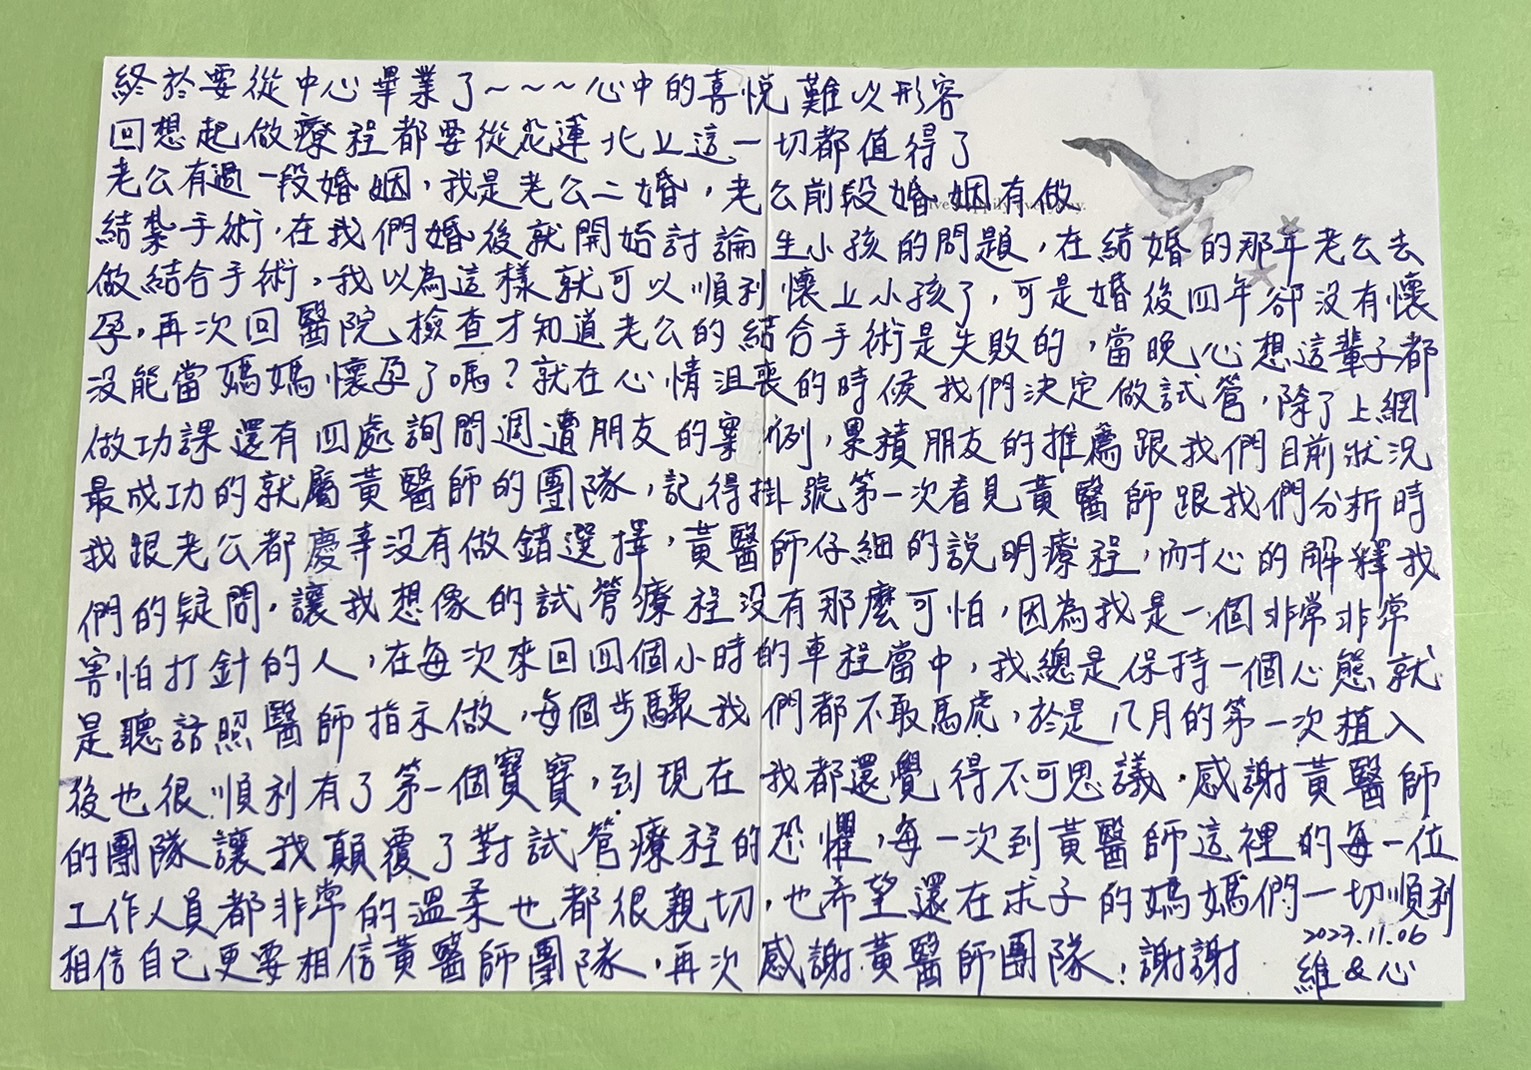 終於要從中心畢業了~~~心中的喜悅難以形容
回想起做療程都要從花蓮北上這一切都值得了
老公有過一段婚姻,我是老公二婚,老公前段婚姻有做
結紮手術,在我們婚後就開始討論生小孩的問題,在結婚的那年老公去
做結合手術。我以為這樣就可以順利懷上小孩了,可是婚後四年卻沒有懷
孕,再次回醫院檢查才知道老公的結合手術是失敗的,當晚心想這輩子都
沒能當媽媽懷孕了嗎?就在心情沮喪的時候我們決定做試管,除了上網
做功課還有四處詢問週遭朋友的案例,累積朋友的推薦跟我們目前狀況
最成功的就屬黃醫師的團隊,記得掛號第一次看見黃醫師跟我們分析時
我跟老公都慶幸沒有做錯選擇,黃醫師仔細的說明療程,耐心的解釋我
們的疑問,讓我想像的試管療程沒有那麼可怕,因為我是一個非常非常
害怕打針的人,在每次來回四個小時的車程當中,我總是保持一個心態就
是聽話照醫師指示做,每個步驟我們都不敢馬虎,於是八月的第一次植入
後也很順利有了第一個寶寶,到現在我都還覺得不可思議.感謝黃醫師
的團隊讓我顛覆了對試管療程的恐懼,每一次到黃醫師這裡的每一位
工作人員都非常的溫柔也都很親切,也希望還在求子的媽媽們一切順利
相信自己更要相信黃醫師團隊,再次感謝黃醫師團隊,謝謝
2023.11.06
維&心